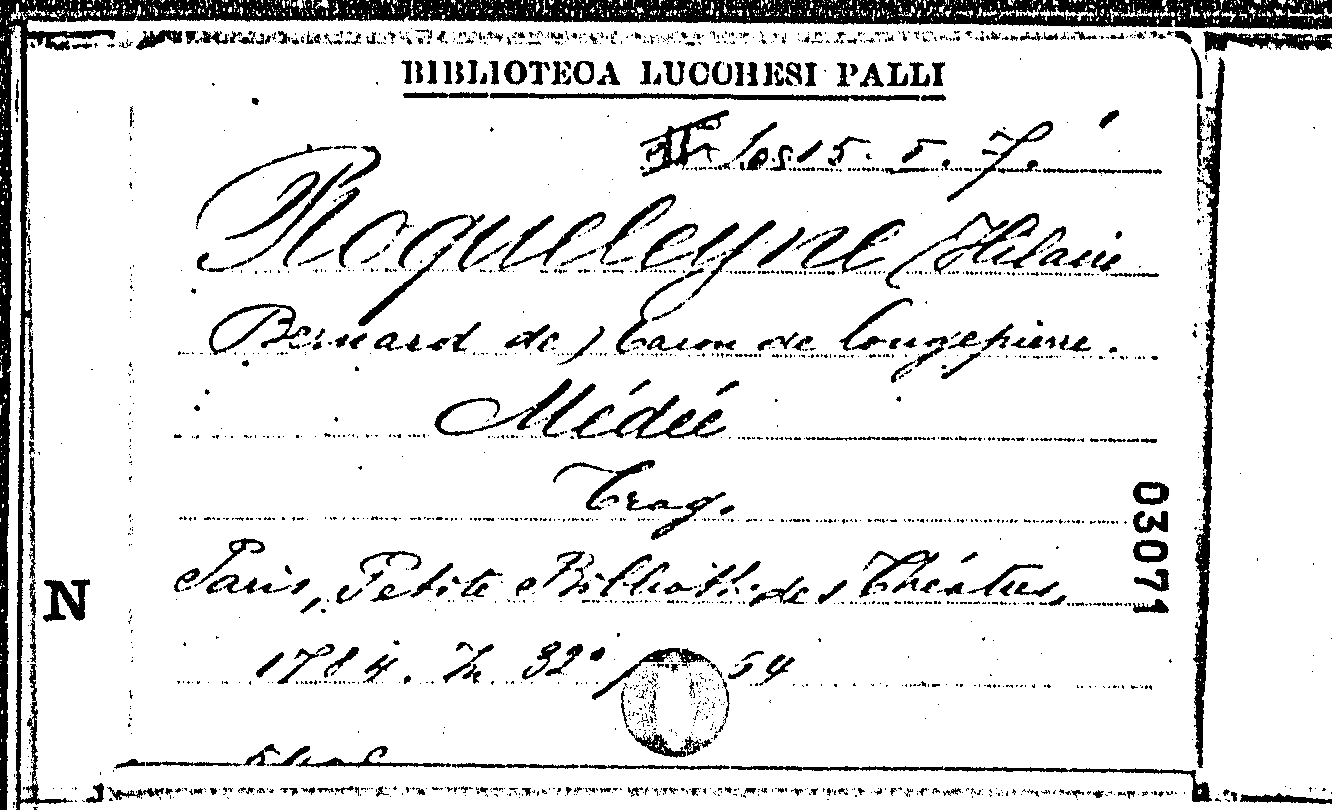 BIBLIOTECA LUCCHESI PALLI
15. 5. 7.
Roqueleyne (Hilaire
Bernard de) baron de Longepierre.
Médée
Trag.
Paris, Petite Biblioth. des Théatres,
1784. In 32° p. 54
03071
N